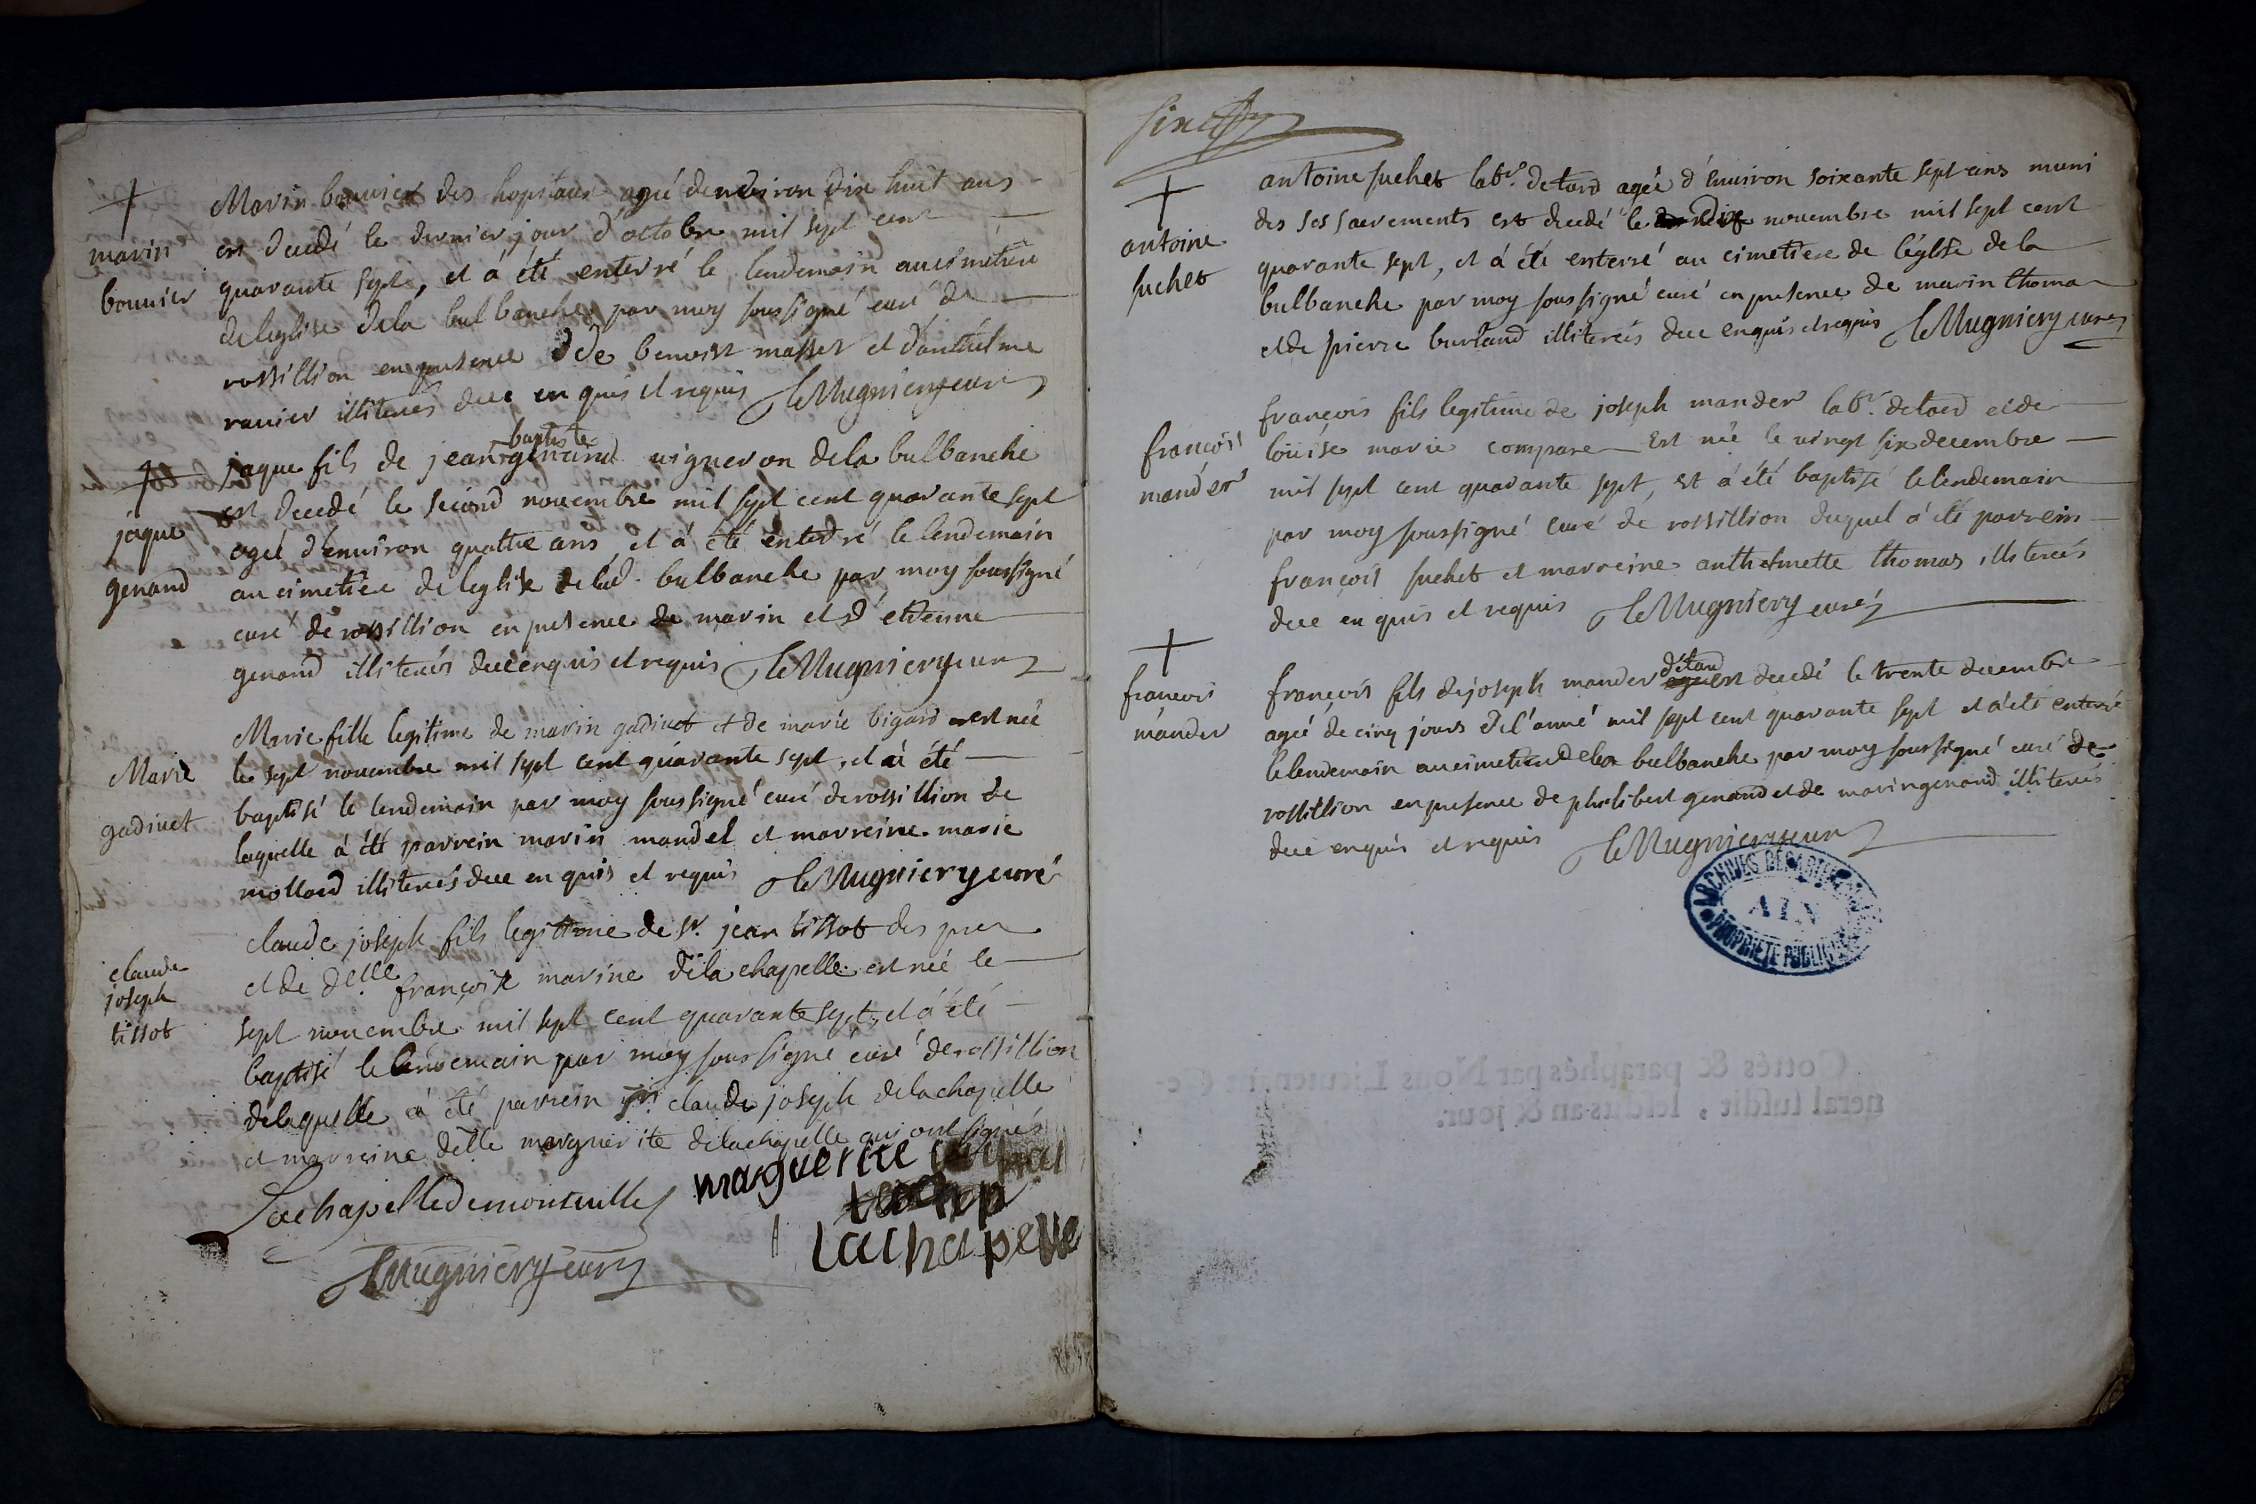 marin
bouvier
Marin bouvier des hopitaux agé denviron dix huit ans
est decedé le dernier jour d'octobre mil sept cent
quarante sept, et á été enterré le lendemain au cimetiere
de leglise dela bulbanche par moy soussigné curé de
rossillion en presence de benoist masset et d'anthelme
ravier illiterés duë enquis et requis LeMugniery curé
jaque
genand
jaque fils de jean baptiste genand vigneron dela bulbanche
est decedé le second novembre mil sept cent quarante sept
agé d'environ quattre ans et á été enterré le lendemain
au cimetiere de leglise de lad. bulbanche par moy soussigné
curé de rossillion en presence de marin et d'etienne
genand illiterés duë enquis et requis LeMugniery curé
Marie
gadivet
Marie fille legitime de marin gadivet et de marie bigard est née
le sept novembre mil sept cent quarante sept, et á été
baptisé le lendemain par moy soussigné curé de rossillion de
laquelle á été parrein marin mandel et marreine marie
mollard illiterés duë enquis et requis LeMugniery curé
claude
joseph
tissot
claude joseph fils legitime de sr. jean tissot des prez
et de delle françoise marine dela chapelle est né le
sept novembre mil sept cent quarante sept, et á été
baptisé le lendemain par moy soussigné curé de rossillion
delaquelle á été parrein sr. claude joseph delachapelle
et marreine delle marguerite delachapelle qui ont signés
Lachapelle Demonteuille marguerite
lachapelle
LeMugniery curé
antoine
suchet
antoine suchet labr. detard agée d'environ soixante sept ans muni
des ses sacrements est decedé le dix novembre mil sept cent
quarante sept, et á été enterré au cimetiere de léglise de la
bulbanche par moy soussigné curé en presence de marin thomas
et de pierre burtand illiterés duë enquis et requis LeMugniery curé
françois
mander
françois fils legitime de joseph mander labr. detard et de
loüise marie compare est née le vingt six decembre
mil sept cent quarante sept, et á été baptisé le lendemain
par moy soussigné curé de rossillion duquel á été parrein
françois suchet et marreine anthelmette thomas illiterés
duë enquis et requis LeMugniery curé
francois
mánder
françois fils de joseph mander détard est decedé le trente decembre
agé de cinq jours de l'anné mil sept cent quarante sept et á été enterré
le lendemain au cimetiere dela bulbanche par moy soussigné curé de
rossillion en presence de philibert genand et de marin genand illiterés
duë enquis et requis LeMugniery curé
ARCHIVES DÉPARTEMENTALES
AIN
PROPRIÉTÉ PUBLIQUE
Cottés & paraphés par Nous Lieutenant Ge-
neral susdit, lesdits an & jour.